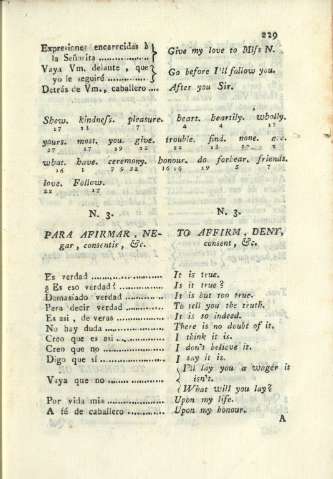 229
Expresiones encarecidas á la Señorita .................. Give my love to Miſs N.
Vaya Vm. delante , que yo le seguiré .................. Go before I'll follow you.
Detrás de Vm., caballero .... After you Sir.
Show. kindneſs. pleasure. hears. heartily. wholly.
17 11 7 4 4 17
yours. most. you. give. trouble. find. none.
what. have. ceremony. honour. do forbear. friends.
16 1 7 9 22 16 19 19 5 7
love. Follow.
22 17
N. 3. N. 3.
PARA AFIRMAR , NE- TO AFFIRM , DENY,
gar , consentir , &c. consent , &c.
Es verdad ........................ It is true.
¿ Es eso verdad? ............... Is it true ?
Demasiado verdad ............ It is but too true.
Para decir verdad ............. To tell you the truth.
Es asi , de veras ............... It is so indeed.
No hay duda .................... There is no doubt of it.
Creo que es asi ................. I think it is.
Creo que no ..................... I don't believe it.
Digo que sí ...................... I say it is.
Vaya que no .................... I'll lay you a wager it
isn't.
What will you lay?
Por vida mia .................... Upon my life.
A fé de caballero ............... Upon my honour.
A